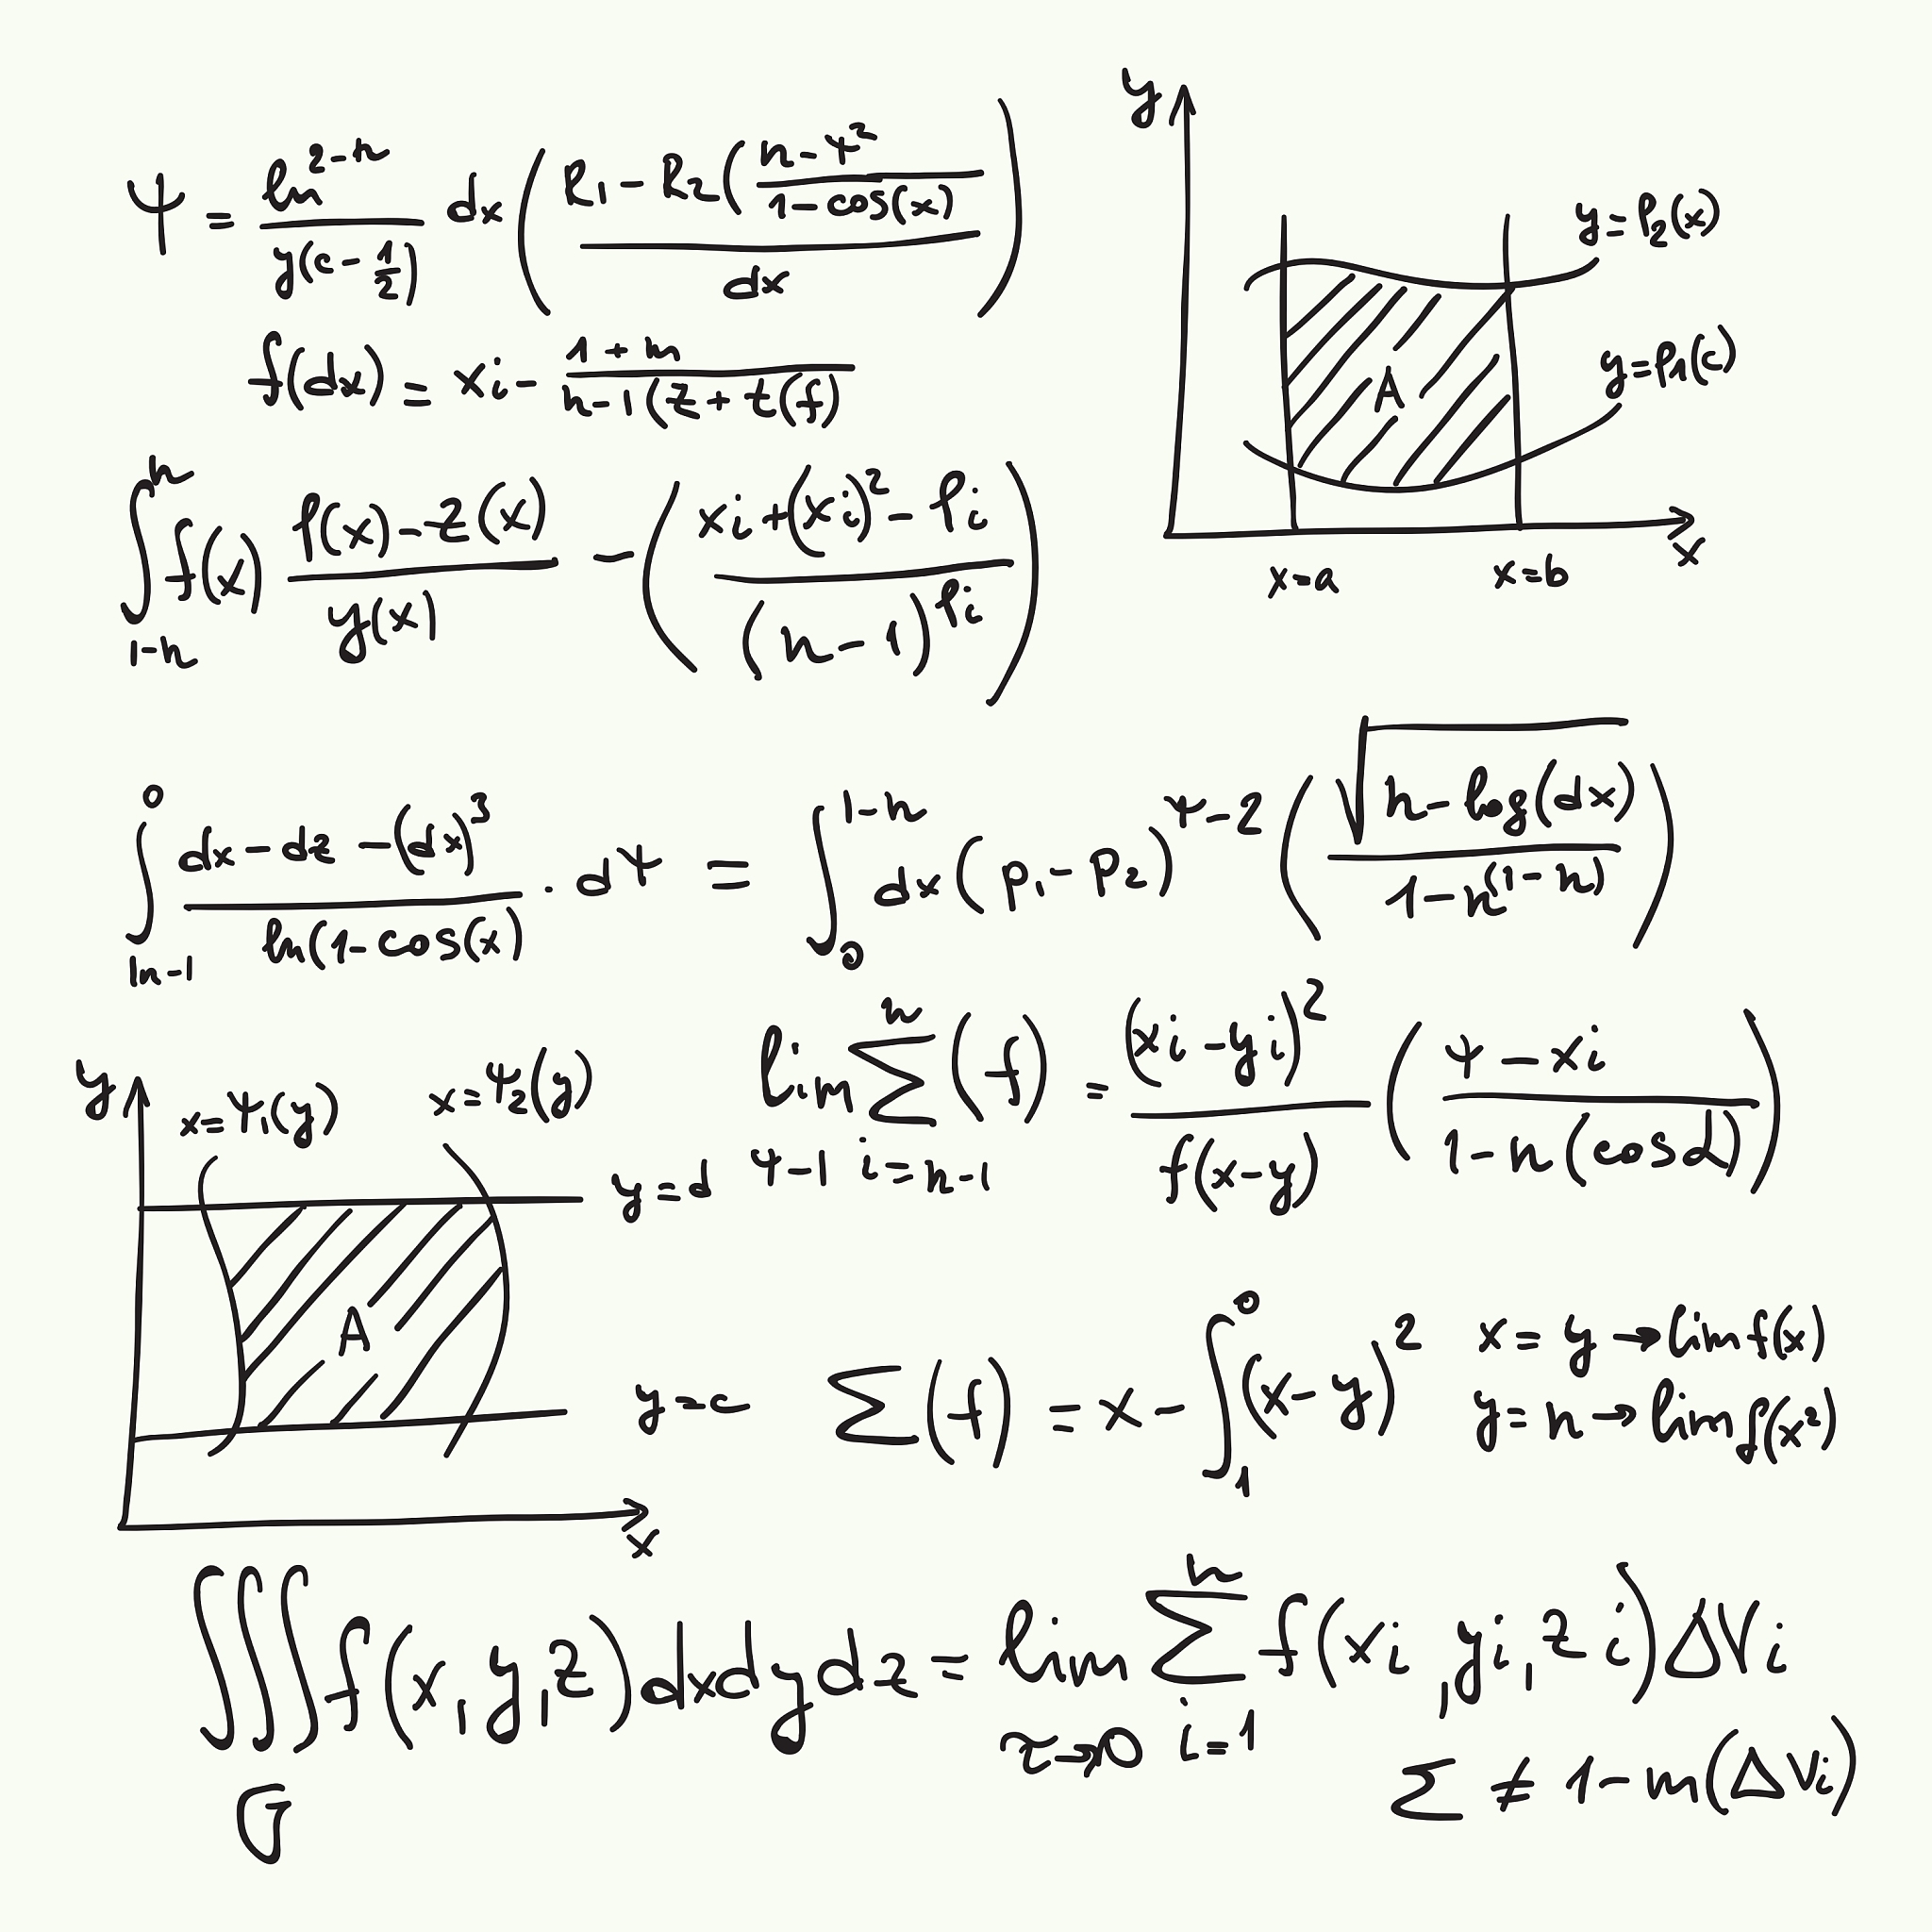 ψ = ln^(2-n) / y(c - 1/2) dx (R1 - R2( n - ψ² / 1 - cos(x) / dx)
f(dx) = xi - 1 + m / n-1(z + t(f)
∫_(1-n)^n f(x) f(x) - z(x) / y(x) - (xi + (xi)² - Pi / (n - 1)^Pi)
y
y = P2(x)
y = P1(c)
A
x = a
x = b
x
∫_(ln-1)^0 dx - dz - (dx)³ / ln(1 - cos(x) · dψ = ∫_0^(1-n) dx (p1 - p2)^(ψ-2) (√(n - log(dx)) / 1 - n^((1-n)))
y
x = ψ1(y)
x = ψ2(y)
y = d
A
y = c
x
lim_(ψ-1) Σ_(i=n-1)^n (f) = (xi - yi)² / f(x-y) (ψ - xi / 1 - n(cos α))
Σ(f) = x - ∫_1^0 (x - y)²
x = y → lim f(x)
y = n → lim f(x²)
∫∫∫_G f(x, y, z) dxdydz = lim_(τ→0) Σ_(i=1)^n f(xi, yi, zi) ΔVi
Σ ≠ 1 - m(ΔVi)